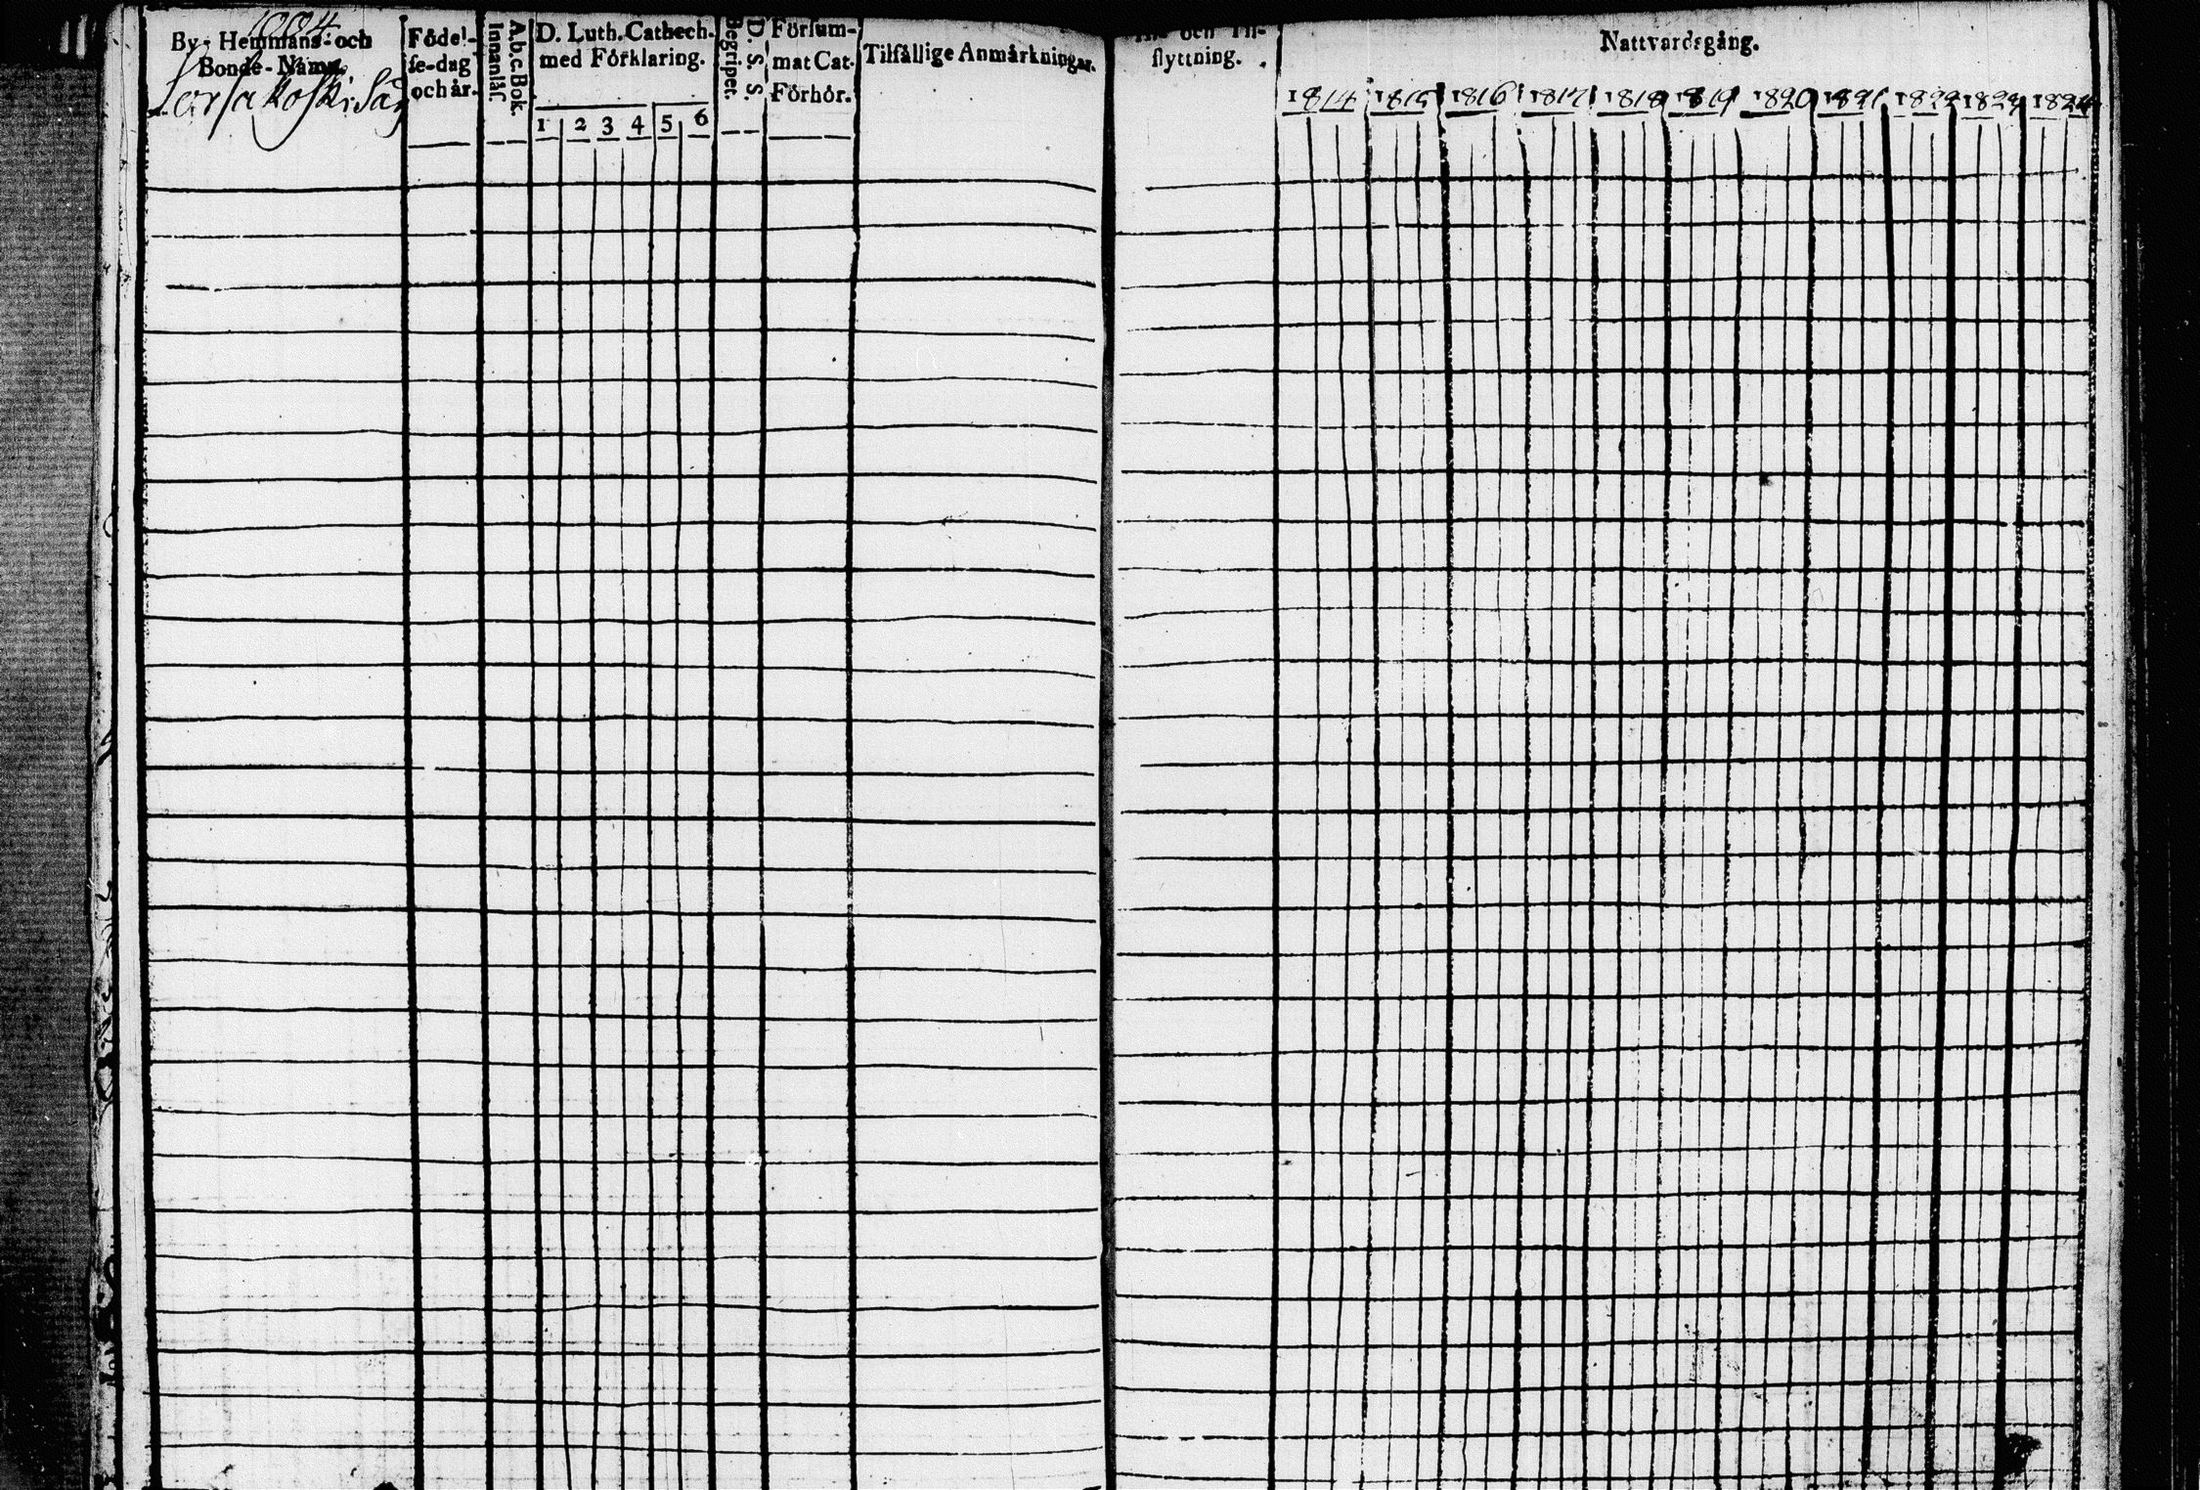 1004.
By- Hemmans- och
Bonde- Namn.
Sorsakoski Såg
Födel-
se-dag
och år.
A.b.c. Bok.
Innanläs.
D. Luth. Cathech.
med Förklaring.
1 2 3 4 5 6
D. S. S.
Begriper.
Försum-
mat Cat.
Förhör.
Tilfällige Anmärkningar.
och Til-
flyttning.
Nattvardsgång.
1814 1815 1816 1817 1818 1819 1820 1821 1822 1823 1824